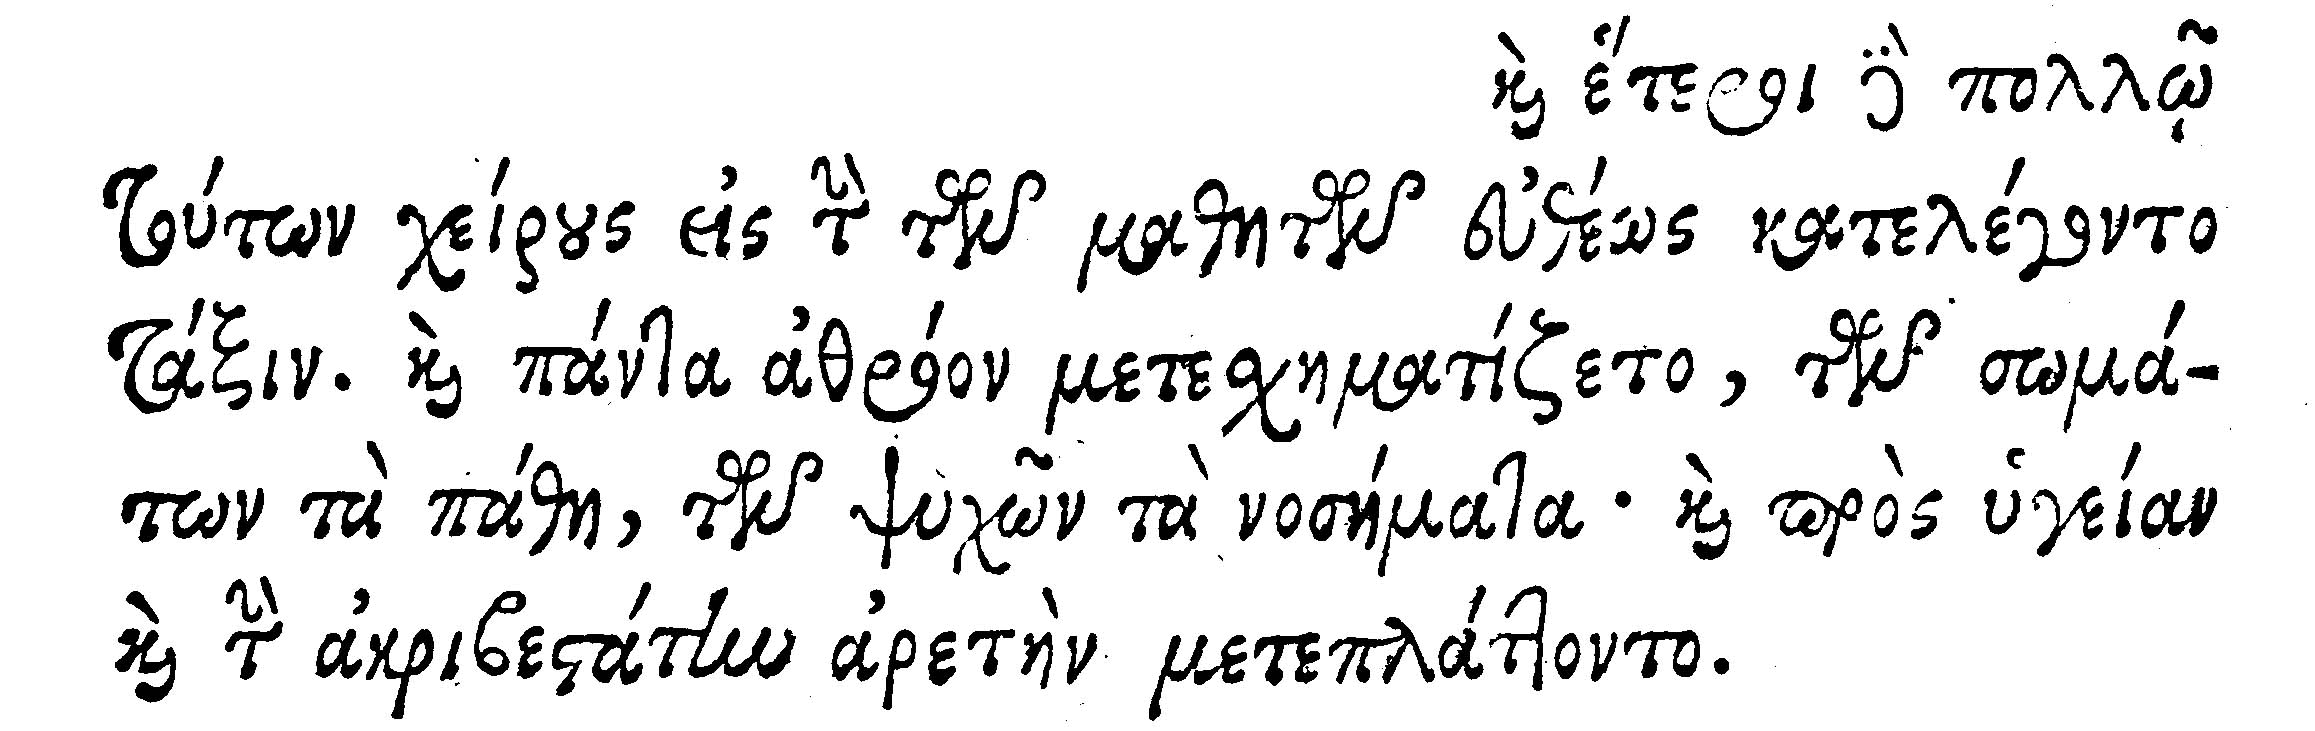 καὶ ἕτεροι δὲ πολλῷ
τούτων χείρους εἰς τὴν τῶν μαθητῶν εὐθέως κατελέγοντο
τάξιν. καὶ πάντα ἀθρόον μετεσχηματίζετο, τῶν σωμά-
των τὰ πάθη, τῶν ψυχῶν τὰ νοσήματα· καὶ πρὸς ὑγείαν
καὶ τὴν ἀκριβεστάτην ἀρετὴν μετεπλάττοντο.